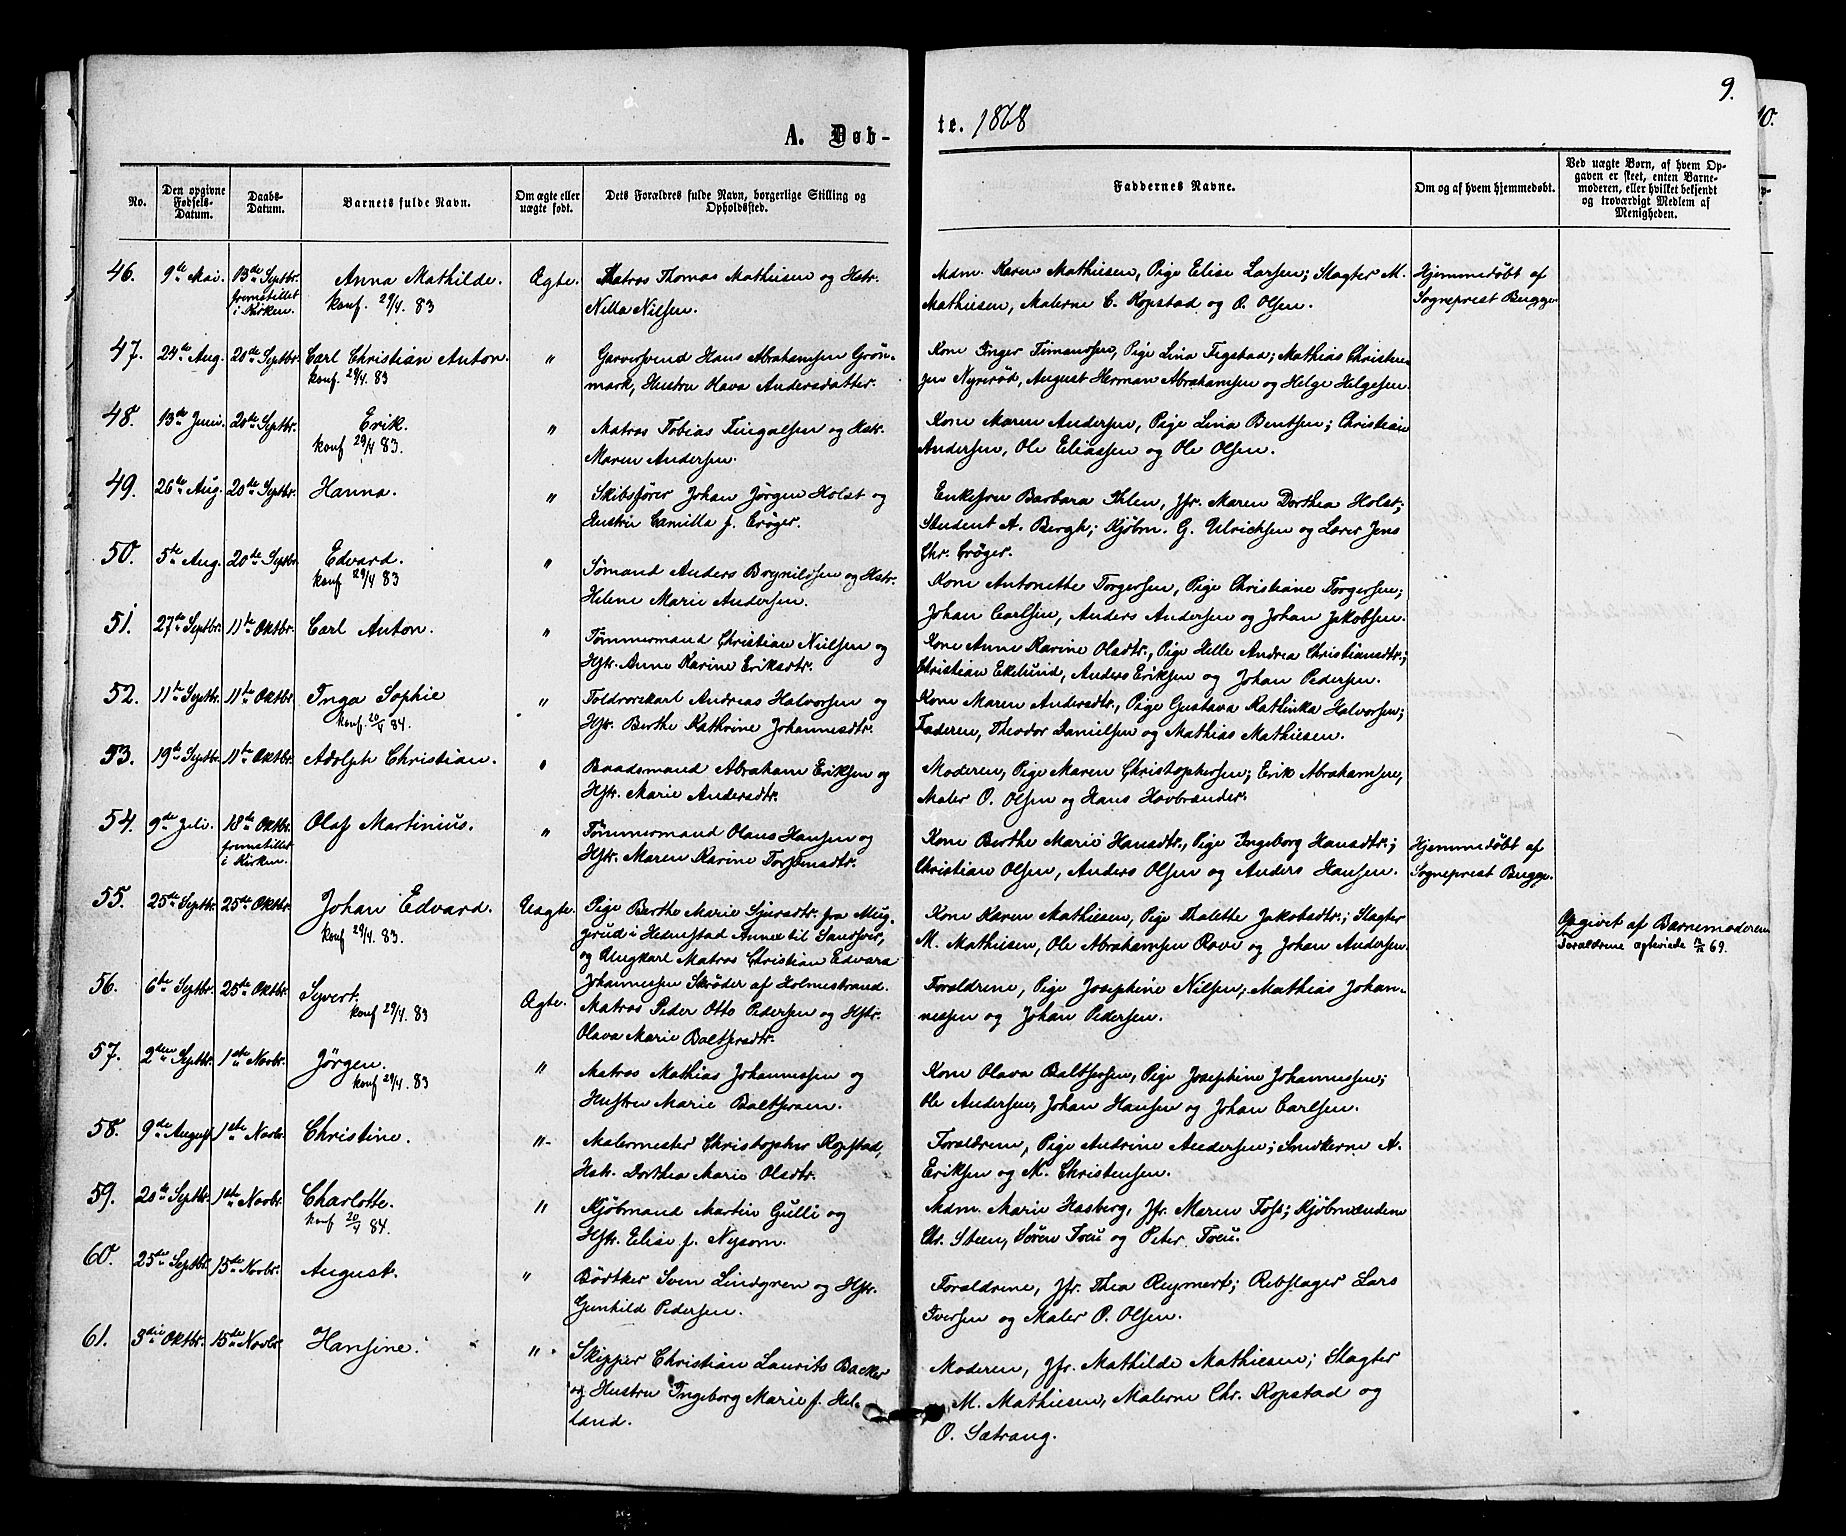 9.
10.
A. Døb-
te. 1868
No.
Den opgivne Fødsels-Datum.
Daabs-Datum.
Barnets fulde Navn.
Om ægte eller uægte født.
Dets Forældres fulde Navn, borgerlige Stilling og Opholdssted.
Faddernes Navne.
Om og af hvem hjemmedøbt.
Ved uægte Børn, af hvem Opgaven er skeet, enten Barnemoderen, eller hvilket bekjendt og troværdigt Medlem af Menigheden.
46. 9de Mai. 13de Septbr. fremstillet i Kirken. Anna Mathilde. konf. 29/4 83 Ægte. Matros Thomas Mathisen og Hstr.
Nilla Nilsen.
Mdm. Karen Mathisen, Pige Elise Larsen; Slagter M.
Mathisen, Malerne C. Kopstad og O. Olsen.
Hjemmedøbt af
Sogneprest Bugge
47. 24de Aug. 20de Septbr. Carl Christian Anton. konf. 29/4. 83 " Garversvend Hans Abrahamsen Grön-
mark, Hustru Olava Andersdatter.
Kone Inger Timandsen, Pige Lina Tegstad; Mathias Christen-
sen Nyrerød, August Herman Abrahamsen og Helge Helgesen
48. 13de Juni. 20de Septbr. Erik. konf 29/4 83. " Matros Tobias Fingalsen og Hstr.
Maren Andersen.
Kone Maren Andersen, Pige Lina Bentsen; Christian
Andersen, Ole Eliassen og Ole Olsen.
49. 26de Aug. 20de Septbr. Hanna. " Skibsfører Johan Jörgen Holst og
Hustru Camilla f. Cröger.
Enkefru Barbara Ihlen, Jfr. Maren Dorthea Holst;
Student A. Bergh; Kjøbm. G. Ulrichsen og Lærer Jens
Chr. Cröger.
50. 5te Aug. 20de Septbr. Edvard. konf 29/4 83 " Sømand Anders Brynildsen og Hstr.
Helene Marie Andersen.
Kone Antonette Torgersen, Pige Christiane Torgersen;
Johan Carlsen, Anders Andersen og Johan Jakobsen.
51. 27de Septbr. 11te Oktbr. Carl Anton. " Tømmermand Christian Nielsen og
Hstr. Anne Karine Eriksdtr.
Kone Anne Karine Olsdtr., Pige Helle Andrea Christiansdtr.;
Christian Ekelund, Anders Eriksen og Johan Pedersen.
52. 11te Septbr. 11te Oktbr. Inga Sophie konf. 20/4 84. " Toldrorskarl Andreas Halvorsen og
Hstr. Berthe Kathrine Johannesdtr.
Kone Maren Andersdtr., Pige Gustava Kathinka Halvorsen;
Faderen, Theodor Danielsen og Mathias Mathiesen.
53. 19de Septbr. 11te Oktbr. Adolph Christian. " Baadsmand Abraham Eriksen og
Hstr. Marie Andersdtr.
Moderen, Pige Maren Christophersen; Erik Abrahamsen,
Maler O. Olsen og Hans Havbrænder.
54. 9de Juli. 18de Oktbr. fremstillet i Kirken. Olaf Martinius. " Tømmermand Olaus Hansen og
Hstr. Maren Karine Torstensdtr.
Kone Berthe Marie Hansdtr., Pige Ingeborg Hansdtr.;
Christian Olsen, Anders Olsen og Anders Hansen.
Hjemmedøbt af
Sogneprest Bugge.
55. 25de Septbr. 25de Oktbr. Johan Edvard. konf 29/4. 83. Uægte. Pige Berthe Marie Sjursdtr. fra Mug-
gerud i Hedenstad Annex til Sandsver,
og Ungkarl Matros Christian Edvard
Johannessen Skrøder af Holmestrand.
Kone Karen Mathisen, Pige Thalette Jakobsdtr.; Slagter
M. Mathisen, Ole Abrahamsen Rove og Johan Andersen
Opgivet af Barnemoderen
Forældrene ægteviede 69.
56. 6te Septbr. 25de Oktbr. Syvert. konf 29/4. 83 Ægte. Matros Peder Otto Pedersen og Hstr.
Olava Marie Baltsersdtr.
Forældrene, Pige Josephine Nilsen; Mathias Johan-
nessen og Johan Pedersen.
57. 2den Septbr. 1ste Novbr. Jörgen. konf 29/4. 83 " Matros Mathias Johannessen og
Hustru Marie Baltsersen.
Kone Olava Baltsersen, Pige Josephine Johannessen;
Ole Andersen, Johan Hansen og Johan Carlsen.
58. 9de August. 1ste Novbr. Christine. " Malermester Christopher Kopstad,
Hstr. Dorthea Marie Olsdtr.
Forældrene, Pige Andrine Andersen; Snedkerne A.
Eriksen og M. Christensen.
59. 20de Septbr. 1ste Novbr. Charlotte. konf 20/4 84. " Kjøbmand Martin Gulli og
Hstr. Elise f. Nysom.
Mdm. Marie Hasberg, Jfr. Maren Foss; Kjøbmændene
Chr. Steen, Sören Foeu og Peter Foeu.
60. 25de Septbr. 15de Novbr. August. " Bödtker Sven Lindgren og Hstr.
Gunhild Pedersen.
Forældrene, Jfr. Thea Reymert; Rebslager Lars
Iversen og Maler O. Olsen.
61. 3die Oktbr. 15de Novbr. Hansine. " Skipper Christian Laurits Backer
og Hustru Ingeborg Marie f. Hel-
land.
Moderen, Jfr. Mathilde Mathiesen; Slagter
M. Mathiesen, Malerne Chr. Kopstad og
O. Sætrang.